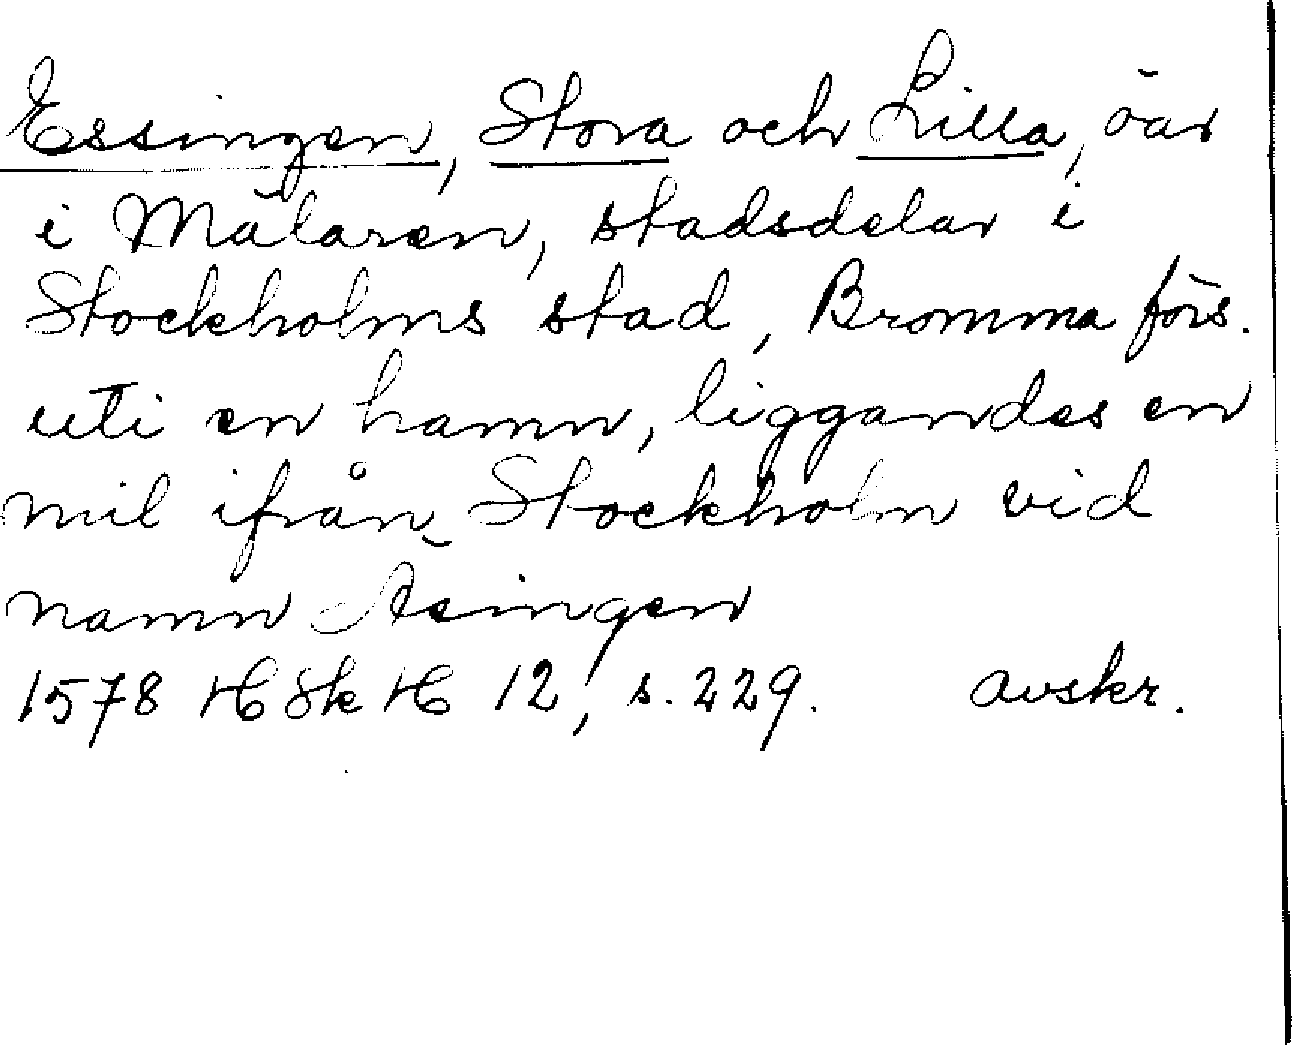 Essingen, Stora och Lilla, öar
i Mälaren, stadsdelar i
Stockholms stad, Bromma förs.
uti en hamn, liggandes en
mil ifrån Stockholm vid
namn Äsingen
1578 HSkH 12, s. 229. avskr.